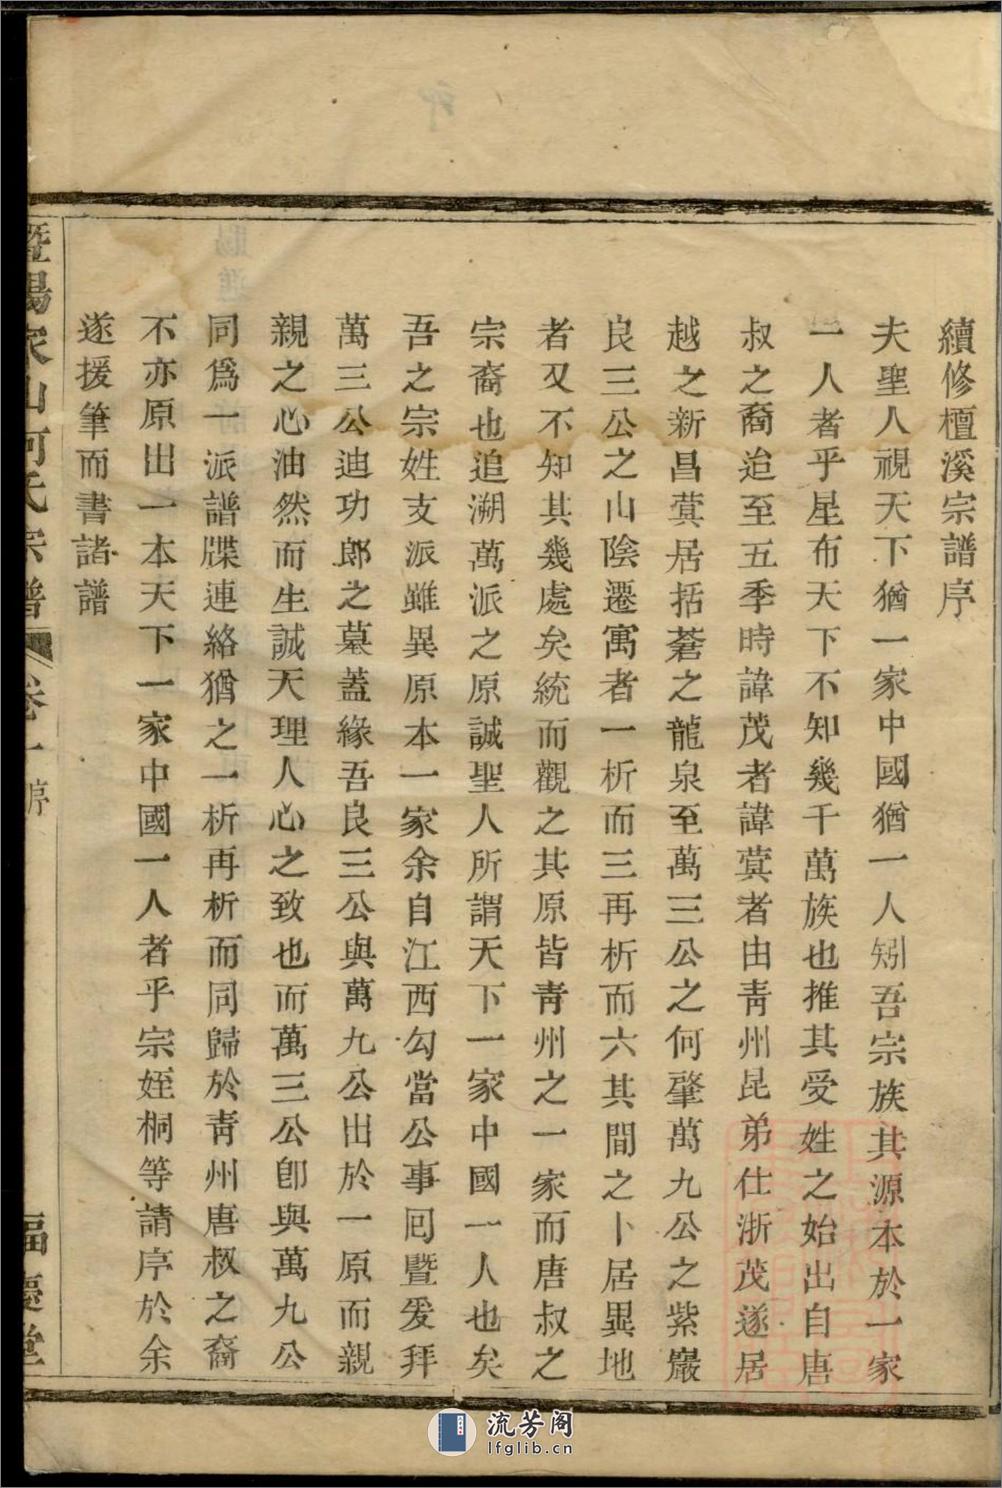 續修檀溪宗譜序
夫聖人視天下猶一家中國猶一人矧吾宗族其源本於一家
一人者乎星布天下不知幾千萬族也推其受姓之始出自唐
叔之裔迨至五季時諱茂者諱蓂者由青州昆弟仕浙茂遂居
越之新昌蓂居括蒼之龍泉至萬三公之何肇萬九公之紫巖
良三公之山陰遷寓者一析而三再析而六其間之卜居異地
者又不知其幾處矣統而觀之其原皆青州之一家而唐叔之
宗裔也追溯萬派之原誠聖人所謂天下一家中國一人也矣
吾之宗姓支派雖異原本一家余自江西勾當公事回暨爰拜
萬三公迪功郎之墓蓋緣吾良三公與萬九公出於一原而親
親之心油然而生誠天理人心之致也而萬三公卽與萬九公
同爲一派譜牒連絡猶之一析再析而同歸於青州唐叔之裔
不亦原出一本天下一家中國一人者乎宗姪桐等請序於余
遂援筆而書諸譜
暨陽家山何氏宗譜 卷一 序 福慶堂
流芳阁
lfglib.cn